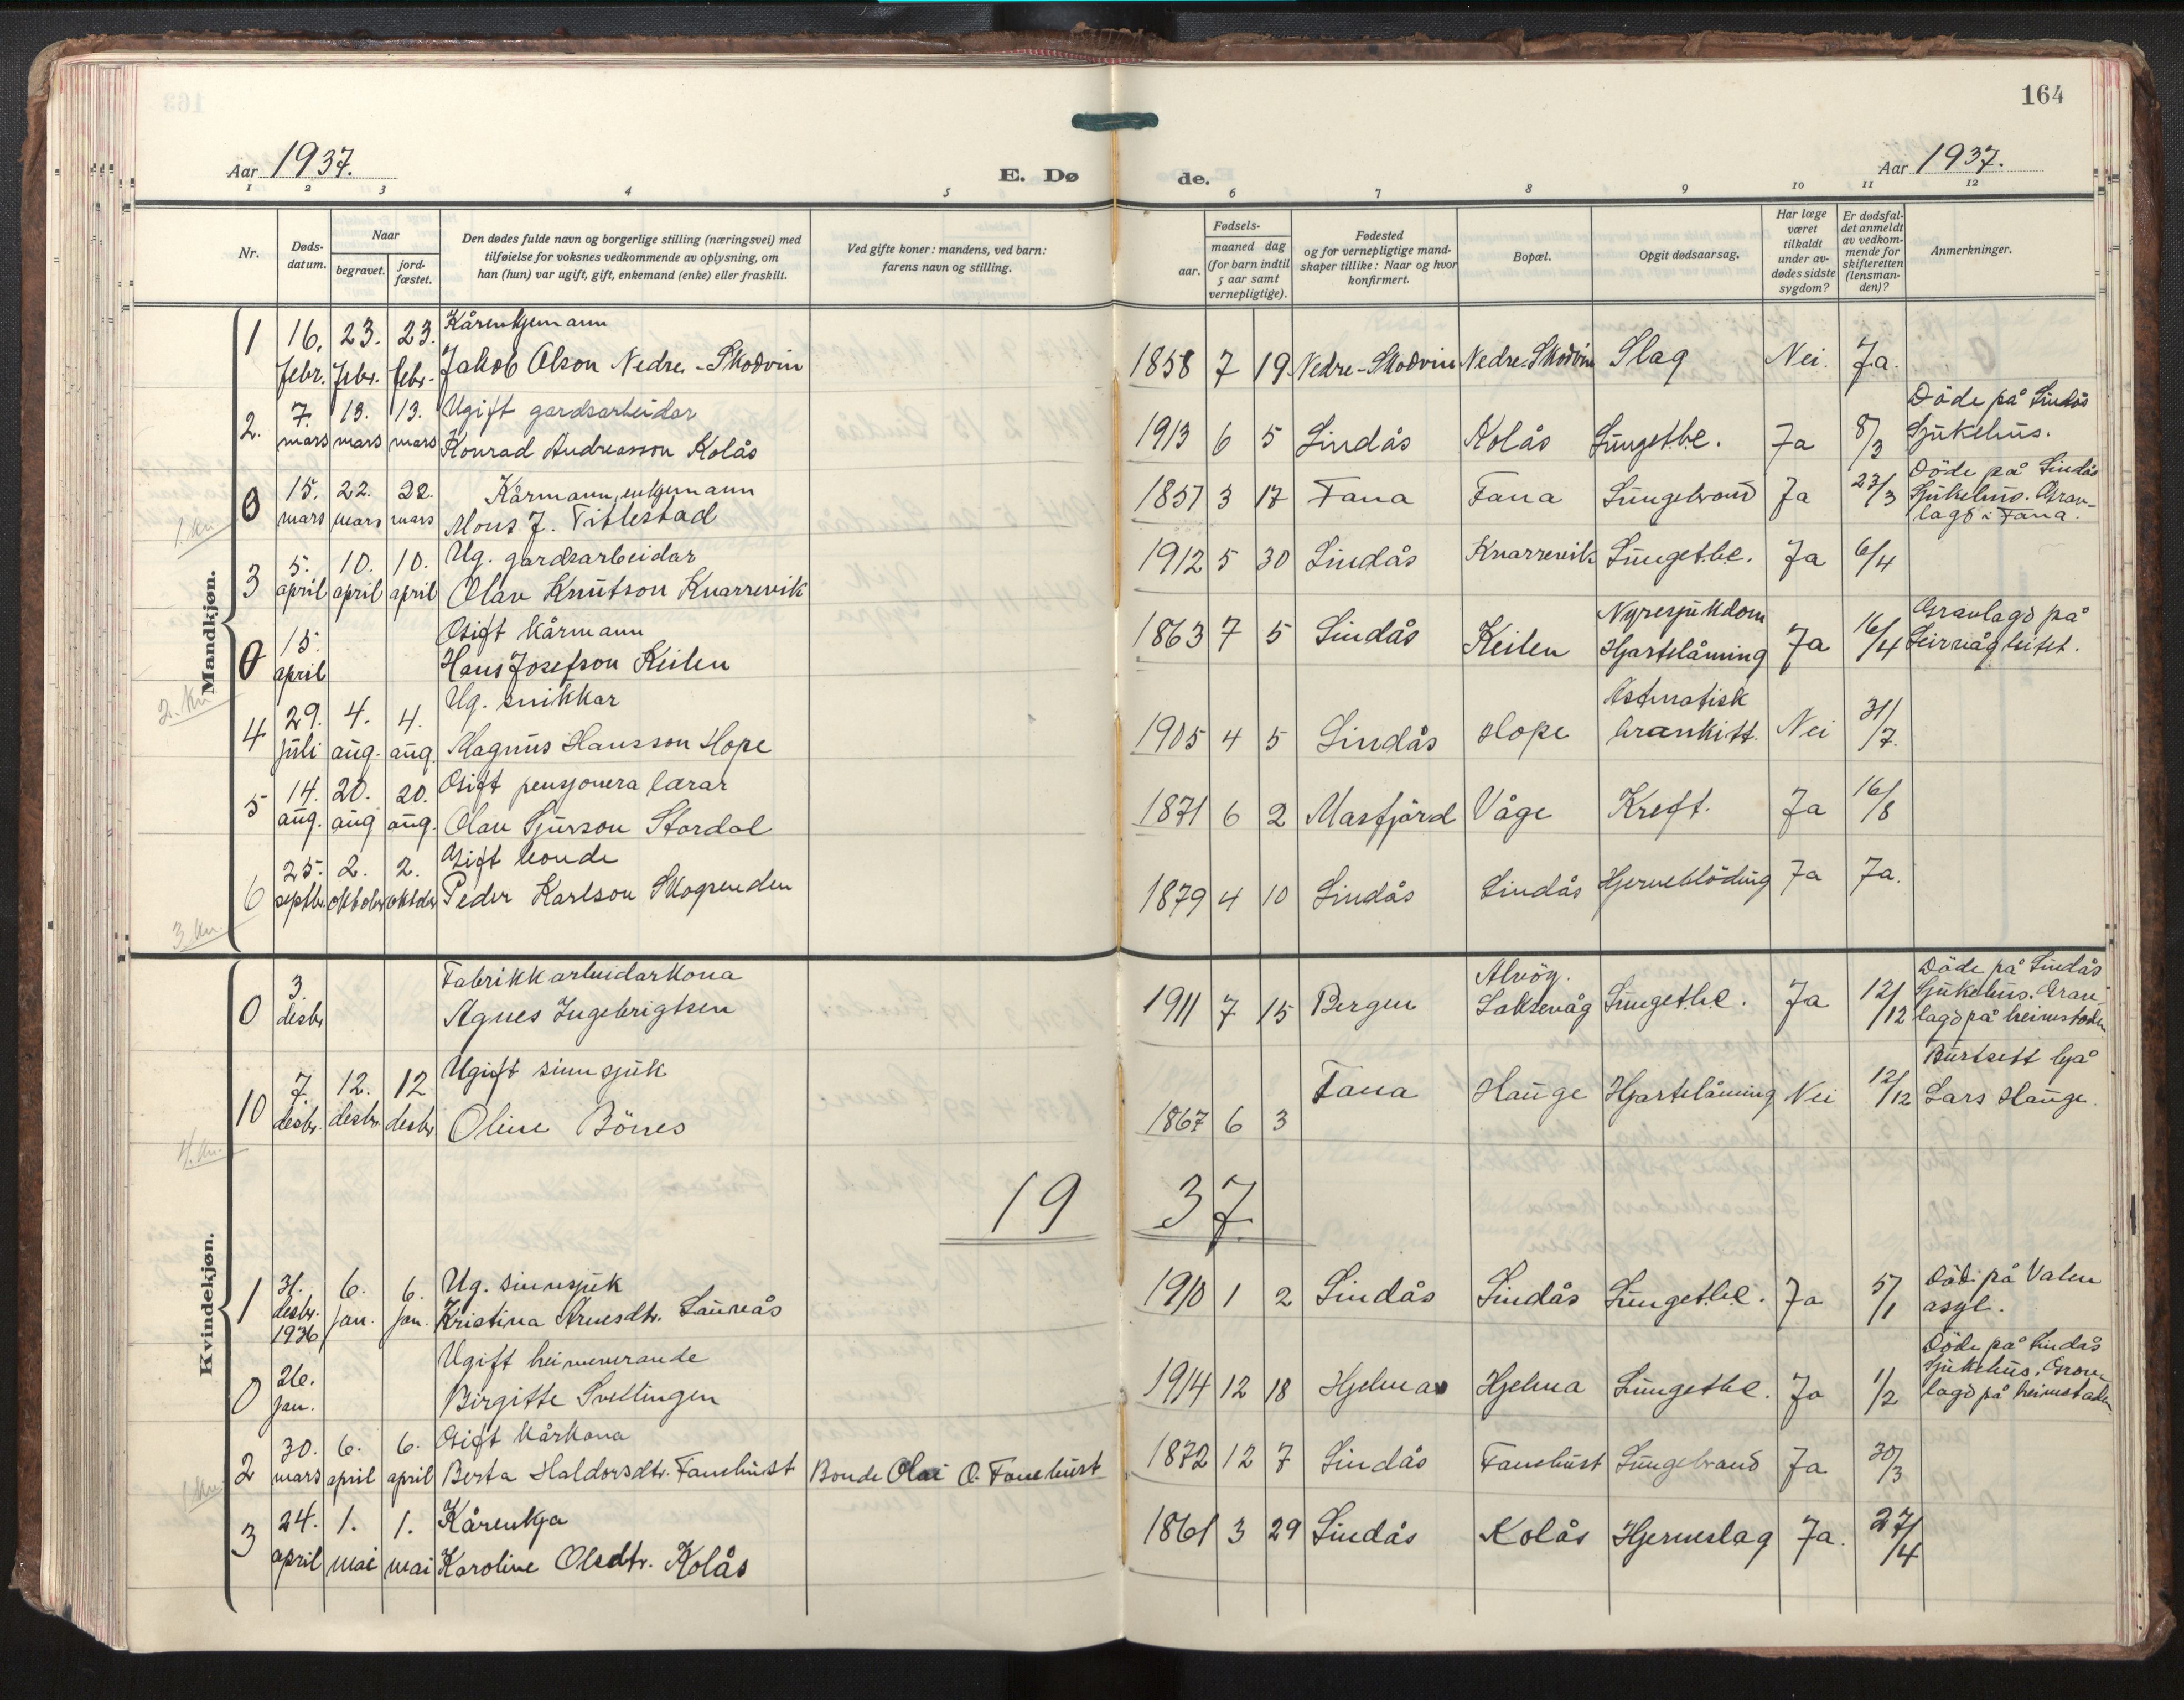 164
Aar 1937.
E. Dø
de.
Aar 1937.
1 2 3 4 5 6 7 8 9 10 11 12
Nr.
Døds-
datum.
Naar
begravet.
jord-
fæstet.
Den dødes fulde navn og borgerlige stilling (næringsvei) med
tilføielse for voksnes vedkommende av oplysning, om
han (hun) var ugift, gift, enkemand (enke) eller fraskilt.
Ved gifte koner: mandens, ved barn:
farens navn og stilling.
Fødsels-
aar.
maaned dag
(for barn indtil
5 aar samt
vernepligtige).
Fødested
og for vernepligtige mand-
skaper tillike: Naar og hvor
konfirmert.
Bopæl.
Opgit dødsaarsag.
Har læge
været
tilkaldt
under av-
dødes sidste
sygdom?
Er dødsfal-
det anmeldt
av vedkom-
mende for
skifteretten
(lensman-
den)?
Anmerkninger.
Mandkjøn.
1 16. febr. 23. febr. 23. febr. Kårenkjemann
Jakob Olson Nedre-Skodvin 1858 7 19 Nedre-Skodvin Nedre-Skodvin Slag Nei. Ja.
2. 7. mars 13. mars 13. mars Ugift gardsarbeidar
Konrad Andreasson Kolås 1913 6 5 Lindås Kolås Lungetbc. Ja 8/3 Döde på Lindås
Sjukehus.
0 15. mars 22. mars 22. mars Kårmann, enkjemann
Mons J. Titlestad 1857 3 17 Fana Fana Lungebrand Ja 23/3 Döde på Lindås
Sjukehus. Grav-
lagd i Fana.
1. kv.
3 5. april 10. april 10. april Ug. gardsarbeidar
Olav Knutson Knarrevik 1912 5 30 Lindås Knarrevik Lungetbc. Ja 6/4
0 15. april Gift kårmann
Hans Josefson Keilen 1863 7 5 Lindås Keilen Nyresjukdom
Hjartelåming Ja 16/4 Gravlagd på
Leirvåg leitet.
2. kv.
4 29. juli 4. aug. 4. aug. Ug. snikkar
Magnus Hansson Hope 1905 4 5 Lindås Hope Astmatisk
brankitt. Nei 31/7.
5 14. aug. 20. aug 20. aug. Gift pensjonera lærar
Olav Sjurson Stordal 1871 6 2 Masfjord Våge Kreft. Ja 16/8
6 25. septbr. 2. oktober 2. oktober Gift bonde
Peder Karlson Skogsenden 1879 4 10 Lindås Lindås Hjerneblöding Ja Ja.
3. kv.
Kvindekjøn.
0 3. desbr Fabrikkarbeidarkona
Agnes Ingebrigtsen 1911 7 15 Bergen Alvöy.
Laksevåg Lungetbc. Ja 12/12 Döde på Lindås
Sjukehus. Grav-
lagd på heimstaden
10 7. desbr. 12. desbr. 12 desbr Ugift sinnsjuk
Oline Bönes 1867 6 3 Fana Hauge Hjartelåming Nei 12/12 Burtsett hjå
Lars Hauge.
4. kv.
19 37
1 31. desbr. 1936 6. jan. 6. jan. Ug. sinnsjuk
Kristina Arnesdtr. Laurås 1910 1 2 Lindås Lindås Lungetbc. Ja 5/1 Död på Valen
asyl.
0 26. jan. Ugift heimeverande
Birgitte Svellingen 1914 12 18 Hjelma Hjelma Lungetbc. Ja 1/2 Döde på Lindås
Sjukehus. Grav-
lagd på heimstaden
2 30. mars 6. april 6. april Gift kårkona
Berta Haldorsdtr. Fanehust Bonde Olai O. Fanehust 1872 12 7 Lindås Fanehust Lungebrand Ja 30/3
1. kv.
3 24. april 1. mai 1. mai Kårenkja
Karoline Olsdtr. Kolås 1861 3 29 Lindås Kolås Hjerneslag Ja. 27/4